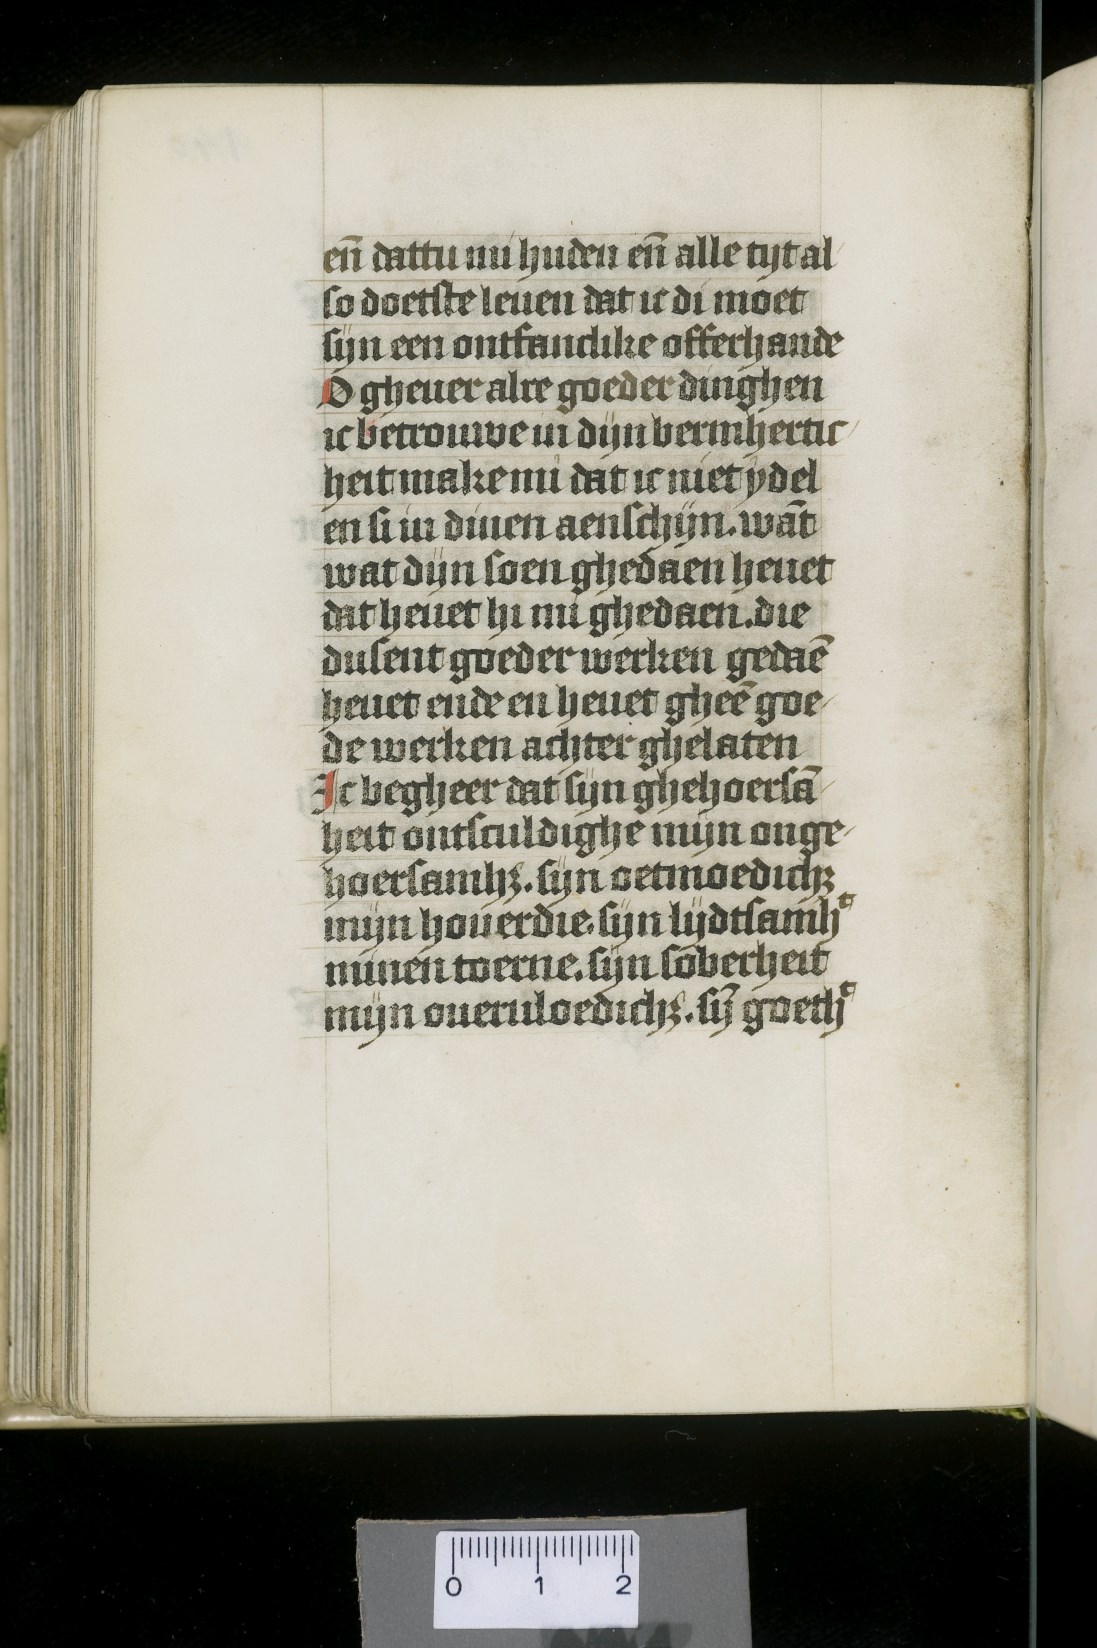 en̄ dattu mi huden en̄ alle tijt al
so doetste leuen dat ic di moet
sijn een ontfanclike offerhande
O gheuer alre goeder dinghen
ic betrouwe in dijn bermhertic
heit make mi dat ic niet ydel
en si in dinen aenschijn. wāt
wat dijn soen ghedaen heuet
dat heuet hi mi ghedaen. die
dusent goeder werken gedaē
heuet ende en heuet gheē goe
de werken achter ghelaten
Ic begheer dat sijn ghehoersā
heit ontsculdighe mijn onge
hoersamhꝫ. sijn oetmoedichꝫ
mijn houerdie. sijn lijdtsamhᵗ
minen toerne. sijn soberheit
mijn oueruloedichꝫ. sij̄ goethᵗ
0 1 2